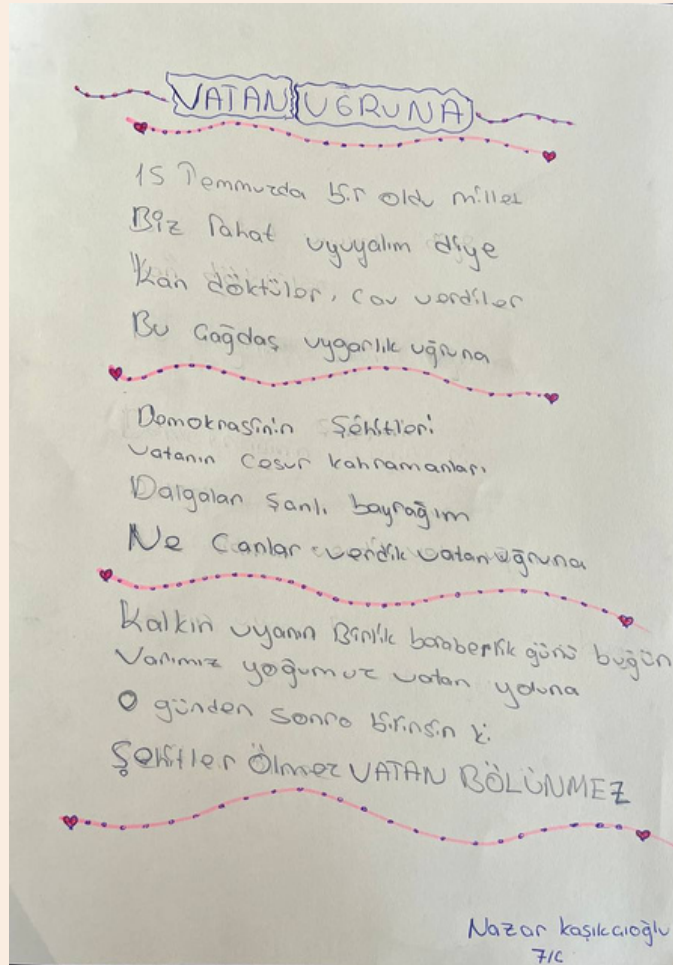 VATAN UĞRUNA
15 Temmuzda bir oldu millet
Biz rahat uyuyalım diye
Kan döktüler, can verdiler
Bu Çağdaş uygarlık uğruna
Demokrasinin Şehitleri
Vatanın cesur kahramanları
Dalgalan şanlı bayrağım
Ne Canlar verdik vatan uğruna
Kalkın uyanın Birlik beraberlik günü bugün
Varımız yoğumuz vatan yoluna
O günden sonra bilinsin ki
Şehitler Ölmez VATAN BÖLÜNMEZ
Nazar kaşıkcıoğlu
7/C